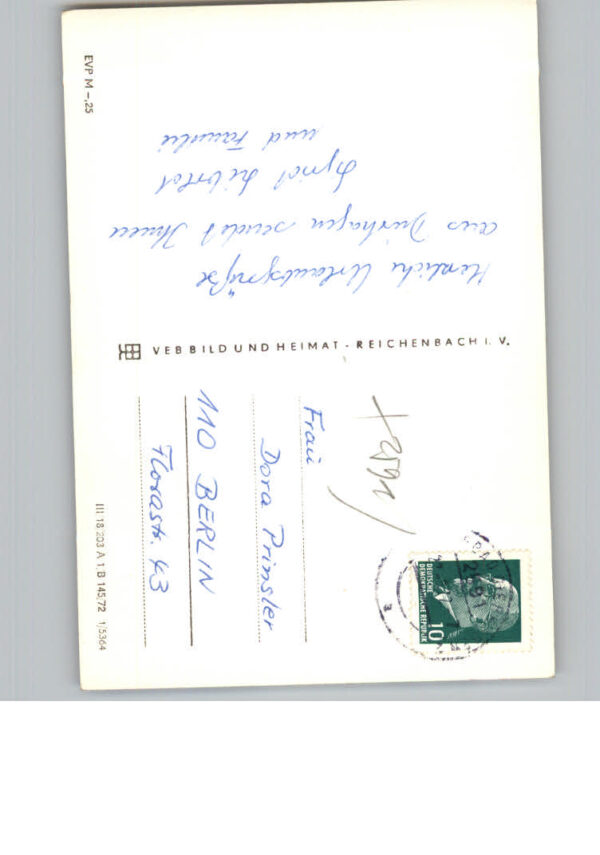 EVP M -,25
Herzliche Urlaubsgrüße
aus Dierhagen sendet Ihnen
und Familie
VEB BILD UND HEIMAT · REICHENBACH I. V.
Frau
Dora Prinsler
110 BERLIN
Florastr. 43
III 18 203 A 1 B 145/72 1/5364
DEUTSCHE
DEMOKRATISCHE REPUBLIK
10